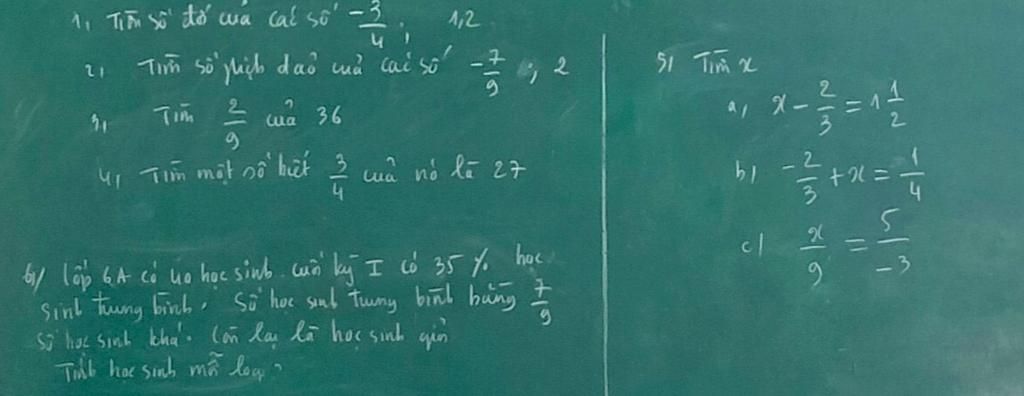 1, Tìm số đối của các số -3/4, 1,2
2, Tìm số nghịch đảo của các số -7/9; 2
3, Tìm 2/9 của 36
4, Tìm một số biết 3/4 của nó là 27
6/ lớp 6A có 40 học sinh. cuối kỳ I có 35 % học
sinh trung bình. Số học sinh trung bình bằng 7/9
số học sinh khá. Còn lại là học sinh giỏi
Tính học sinh mỗi loại?
5, Tìm x
a, x - 2/3 = 1 1/2
b) -2/3 + x = 1/4
c) x/9 = 5/-3